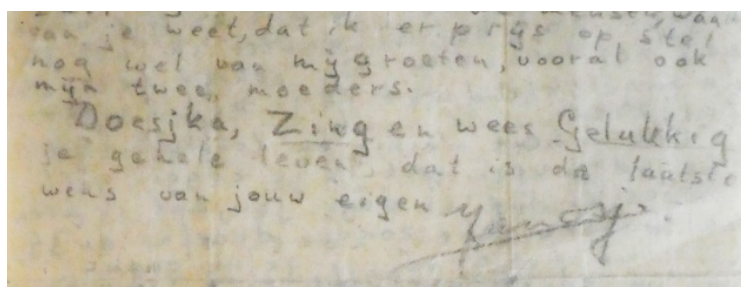 van je weet, dat ik er prijs op stel
nog wel van mij groeten, vooral ook
mijn twee moeders.
Doesjka, Zing en wees Gelukkig
je gehele leven, dat is de laatste
wens van jouw eigen